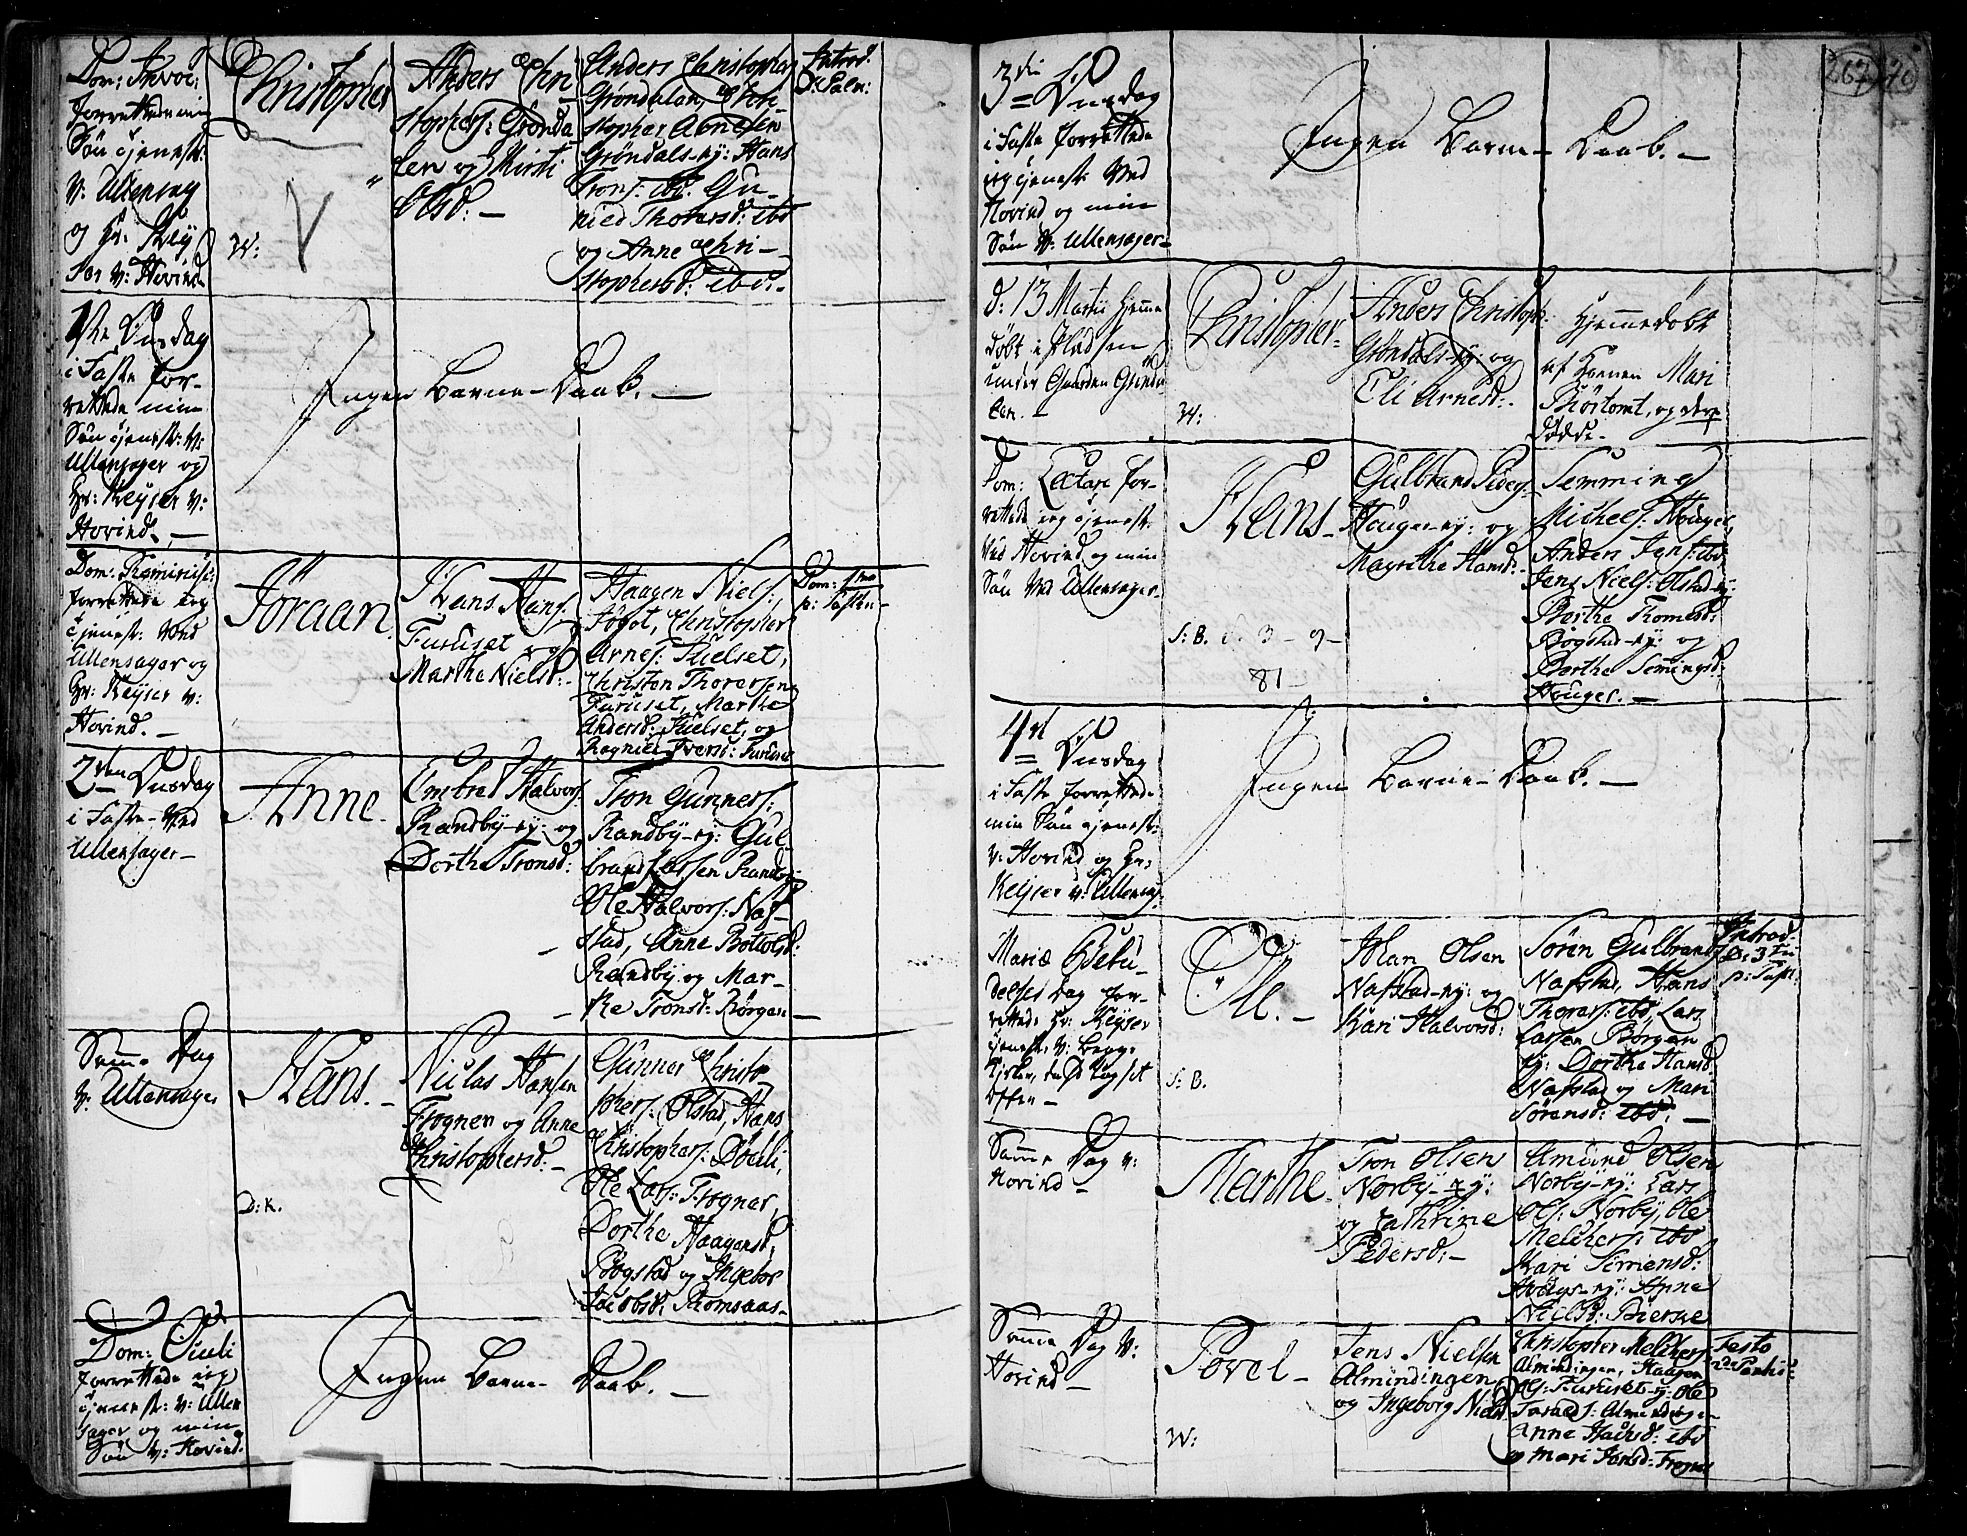 Dom: Invoc:
forrettede min
Søn tjenest:
V: Ullensag
og Hr. Key
ser v: Hovind
Christopher
W:
Anders Chri
stophers: Grønda
len og Kirsti
Olsd: —
Anders Christophers
Grøndalen, Chri-
stopher Arnesen
Grøndals-ej: Hans
Trons: ibd. Gu-
nild Thorersd: ibd
og Anne Chri-
stophersd: ibd.
Introd.
D: Palm:
1ste Onsdag
i Faste for-
rettede min
Søn tjenest: v:
Ullensager og
Hr: Keyser v:
Hovind. —
Ingen Barne-Daab. —
Dom: Reminisc:
forrettede jeg
tjenest: Ved
Ullensager og
Hr: Keyser v:
Hovind. —
Jöraan
Hans Hans:
Furuset og
Marthe Nielsd: —
Haagen Niels:
Høgot, Christopher
Arnes: Fuelset,
Christen Thorersen
Furuset, Marthe
Andersd: Fuelset, og
Ragnild Iversd: Furuset
Dom: 1mo
p: Fasten
2den Onsdag
i Faste Ved
Ullensager —
Anne
Embret Halvors:
Randby-ej: og
Dorthe Tronsd:
Tron Gunners:
Randby-ej: Gul-
brand Larsen Randby
Ole Halvors: Naf-
stad, Anne Botolsd:
Randby og Mar-
the Tronsd: Børgen —
Samme Dag
V: Ullensager
Hans. —
D: K.
Niclas Hansen
Frogner og Anne
Christophersd: —
Gunner Christo
phers: Olstad, Hans
Christophers: Døhli,
Ole Lars: Frogner,
Dorthe Haagensd,
Bøgstad og Ingebor
Jacobsd: Romsaas —
Dom: Oculi
forrettede jeg
tjenest: v: Ullen
sager og min
Søn v: Hovind.
Ingen Barne-Daab. —
267
3die Onsdag
i Faste forrettede
jeg tjenest: Ved
Hovind og min
Søn V: Ullensager —
Ingen Barne-Daab. —
d: 13 Martii hjemme
døbt i Pladsen
under Gaarden Grønda
len. —
Christopher —
W:
Anders Christoph:
Grøndals-ej: og
Eli Arnesd: —
Hjemmedøbt
af Konen Mari
Børstomt, og derp
døde —
Dom: Lætare for-
rettede jeg tjenest:
Ved Hovind og min
Søn Ved Ullensager —
Hans —
S: B. d. 3 – 9 –
81
Gulbrand Peders
Houger-ej: og
Magrethe Hansd: —
Semming
Michels: Houger,
Anders Jens: ibd
Jens Niels: Olstad-ej:
Berthe Thomesd:
Bøgstad-ej: og
Berthe Semingsd:
Houger. —
4de Onsdag
i Faste forrettede
min Søn tjenest:
v: Hovind og Hr,
Keyser v: Ullensag:
Ingen Barne-Daab. —
Mariæ Bebu-
delses Dag for-
rettede Hr: Keyser
tjenest: v: begge
Kirker, da Jeg
Ole. —
S: B.
Johan Olsen
Nafstad-ej: og
Kari Halvorsd:
Søren Gulbrands
Nafstad, Hans
Thorers: ibd, Lars
Larsen Børgen
ej: Dorthe Hansd,
Nafstad og Mari
Sørensd: ibd: —
Introd
D: 3 tii
p: Pask:
Samme Dag v:
Hovind —
Marthe —
Tron Olsen
Norby-ej:
og Cathrine
Pedersd: —
Amund Olsen
Norby-ej: Lars
Ols: Norby, Ole
Melchers: ibd
Kari Simensd:
Anne
Nielsd: Bierke
Samme Dag V:
Hovind —
Povel —
W:
Jens Nielsen
Almindingen
og Ingeborg Nielsd
Christopher Melchers:
Almindingen, Haagen
Ols: Furuset-ej: Ole
Almindingen
Anne Hansd: ibd
og Mari Jensd: Frogner
Festo